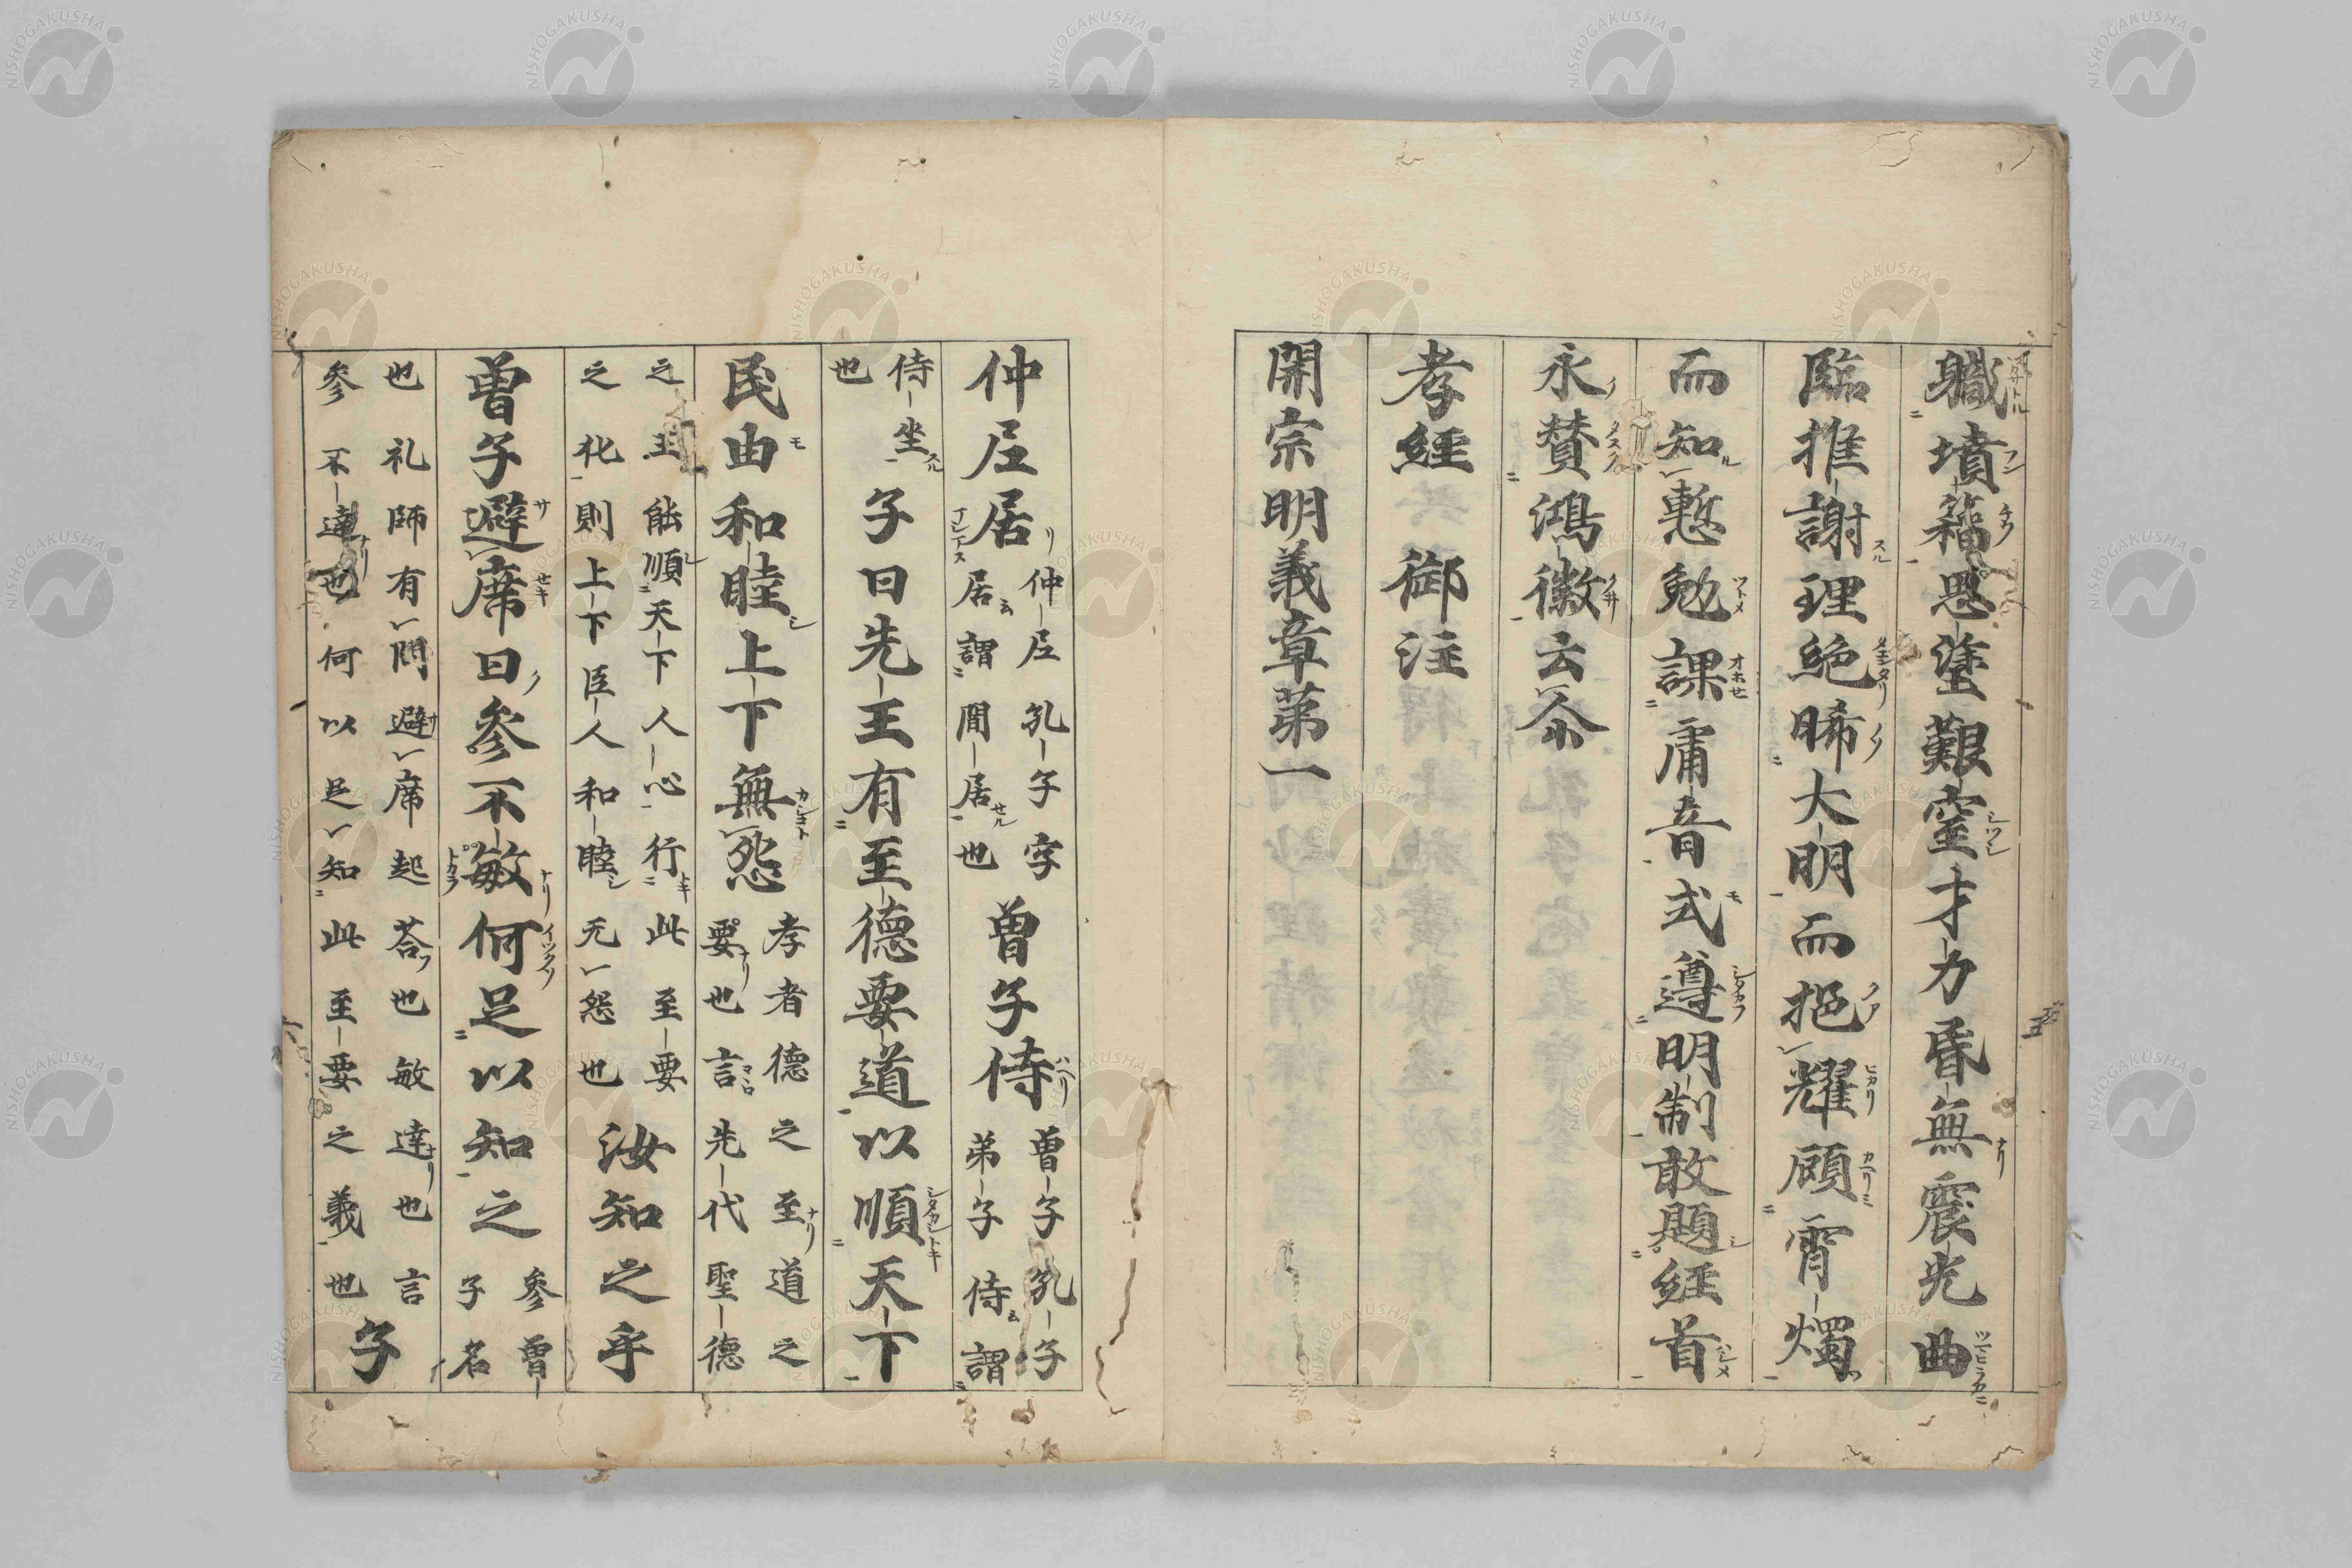 職墳籍思塗艱窒才力昏無震光曲
臨推謝理絶晞大明而挹耀顧霄燭
而知慙勉課庸音式遵明制敢題經首
永賛鴻徽云尒
孝経 御注
開宗明義章第一
仲尼居 仲尼孔子字
居謂間居也
曽子侍 曽子孔子
弟子侍謂
侍坐
也
子曰先王有至德要道以順天下
民由和睦上下無怨 孝者德之至道之
要也言先代聖德
之主能順天下人心行此至要
之化則上下臣人和睦无怨也
汝知之乎
曽子避席曰參不敏何足以知之 參曽
子名
也礼師有問避席起荅也敏達也言
參不達也何以足知此至要之義也
子
五
NISHOGAKUSHA